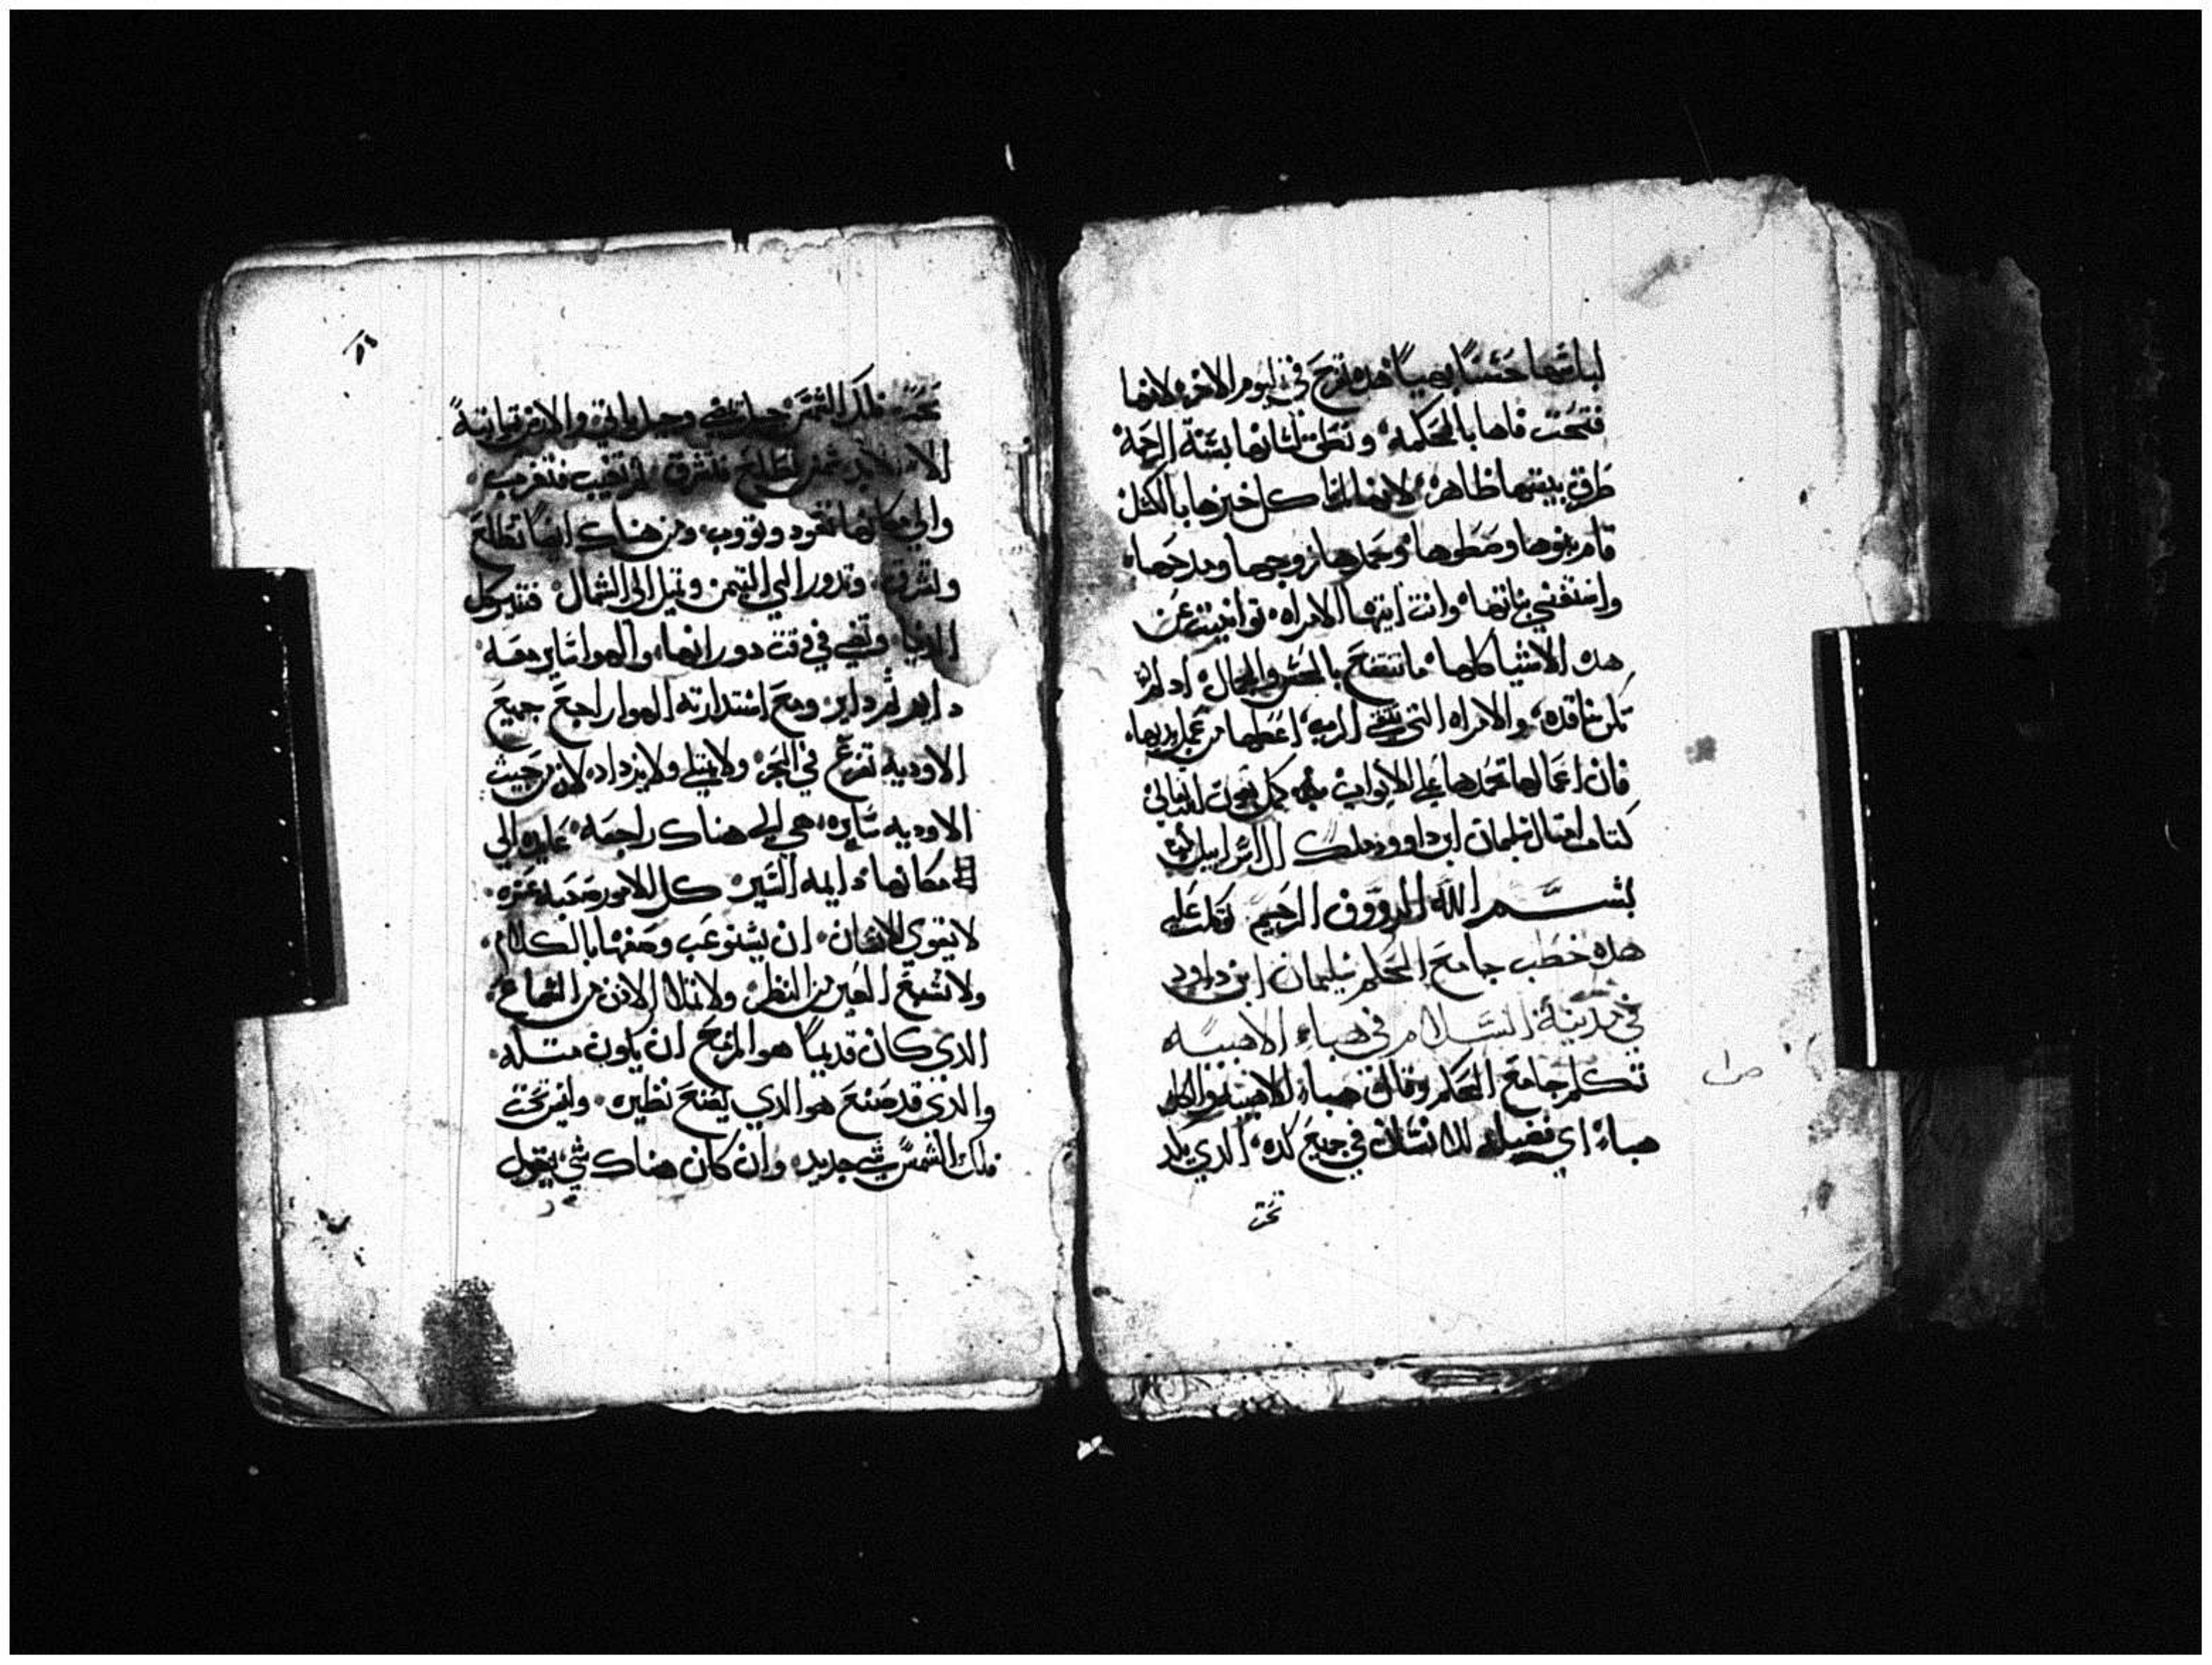 لباسها حسنا بهيا هده تفرح في اليوم الاخر لانها
فتحت فاها بالحكمه ونطق لسانها بسنة الرحمة
طرق بيتها ظاهره لانها كل خبزها بالكسل
قام بنوها وحمدها زوجها ومدحها
واستغني بناتها وانت ايتها الامراه عن
هده الاشيا كلها ما تنتفع بالحسن والجمال اد لم
تكن ناقده والامراه التي تتقي الرب اعطها من عمل يديها
فان اعمالها تحمدها على الابواب كمل بعون الله تعالي
كتاب امتال سليمان ابن داوود ملك ال اسراييل
بسم الله الرووف الرحيم توكلت عليه
هده خطب جامع المحكم سليمان ابن داود
في مدينة السلام في هباء الاهبيه
تتكلم جامع المحكم وقال هباء الاهبيه والكل
هباء اي فضيله للانسان في جميع كده الدي يكد
تحت
تحت فلك الشمس جيل يمضي وجيل ياتي والارض ثابتة
الي الابد شمس تطلع فتشرق ثم تغيب فتغرب
والي مكانها تعود وتووب ومن هناك ايضا تطلع
وتشرق وتدور الي التيمن وتميل الى الشمال فتدير كل
الدنيا وتضي في وقت دورانها والهوا ساير معه
داير ثم داير ومع استدارته الهوا راجع جميع
الاوديه تفرغ في البحر ولا يمتلي ولا يزداد لان من حيث
الاوديه سايره هي الي هناك راجعه عايده الي
مكانها دايمه السير كل الامور صعبه عسره
لا يقوي الانسان ان يستوعب وصفها بالكلام
ولا تشبع العين من النظر ولا تمتلا الادن من السماع
الدي كان قديما هو المزمع ان يكون متله
والذي قد صنع هو الدي يصنع نظيره وليس تحت
فلك الشمس شي جديد وان كان هناك شي يقول